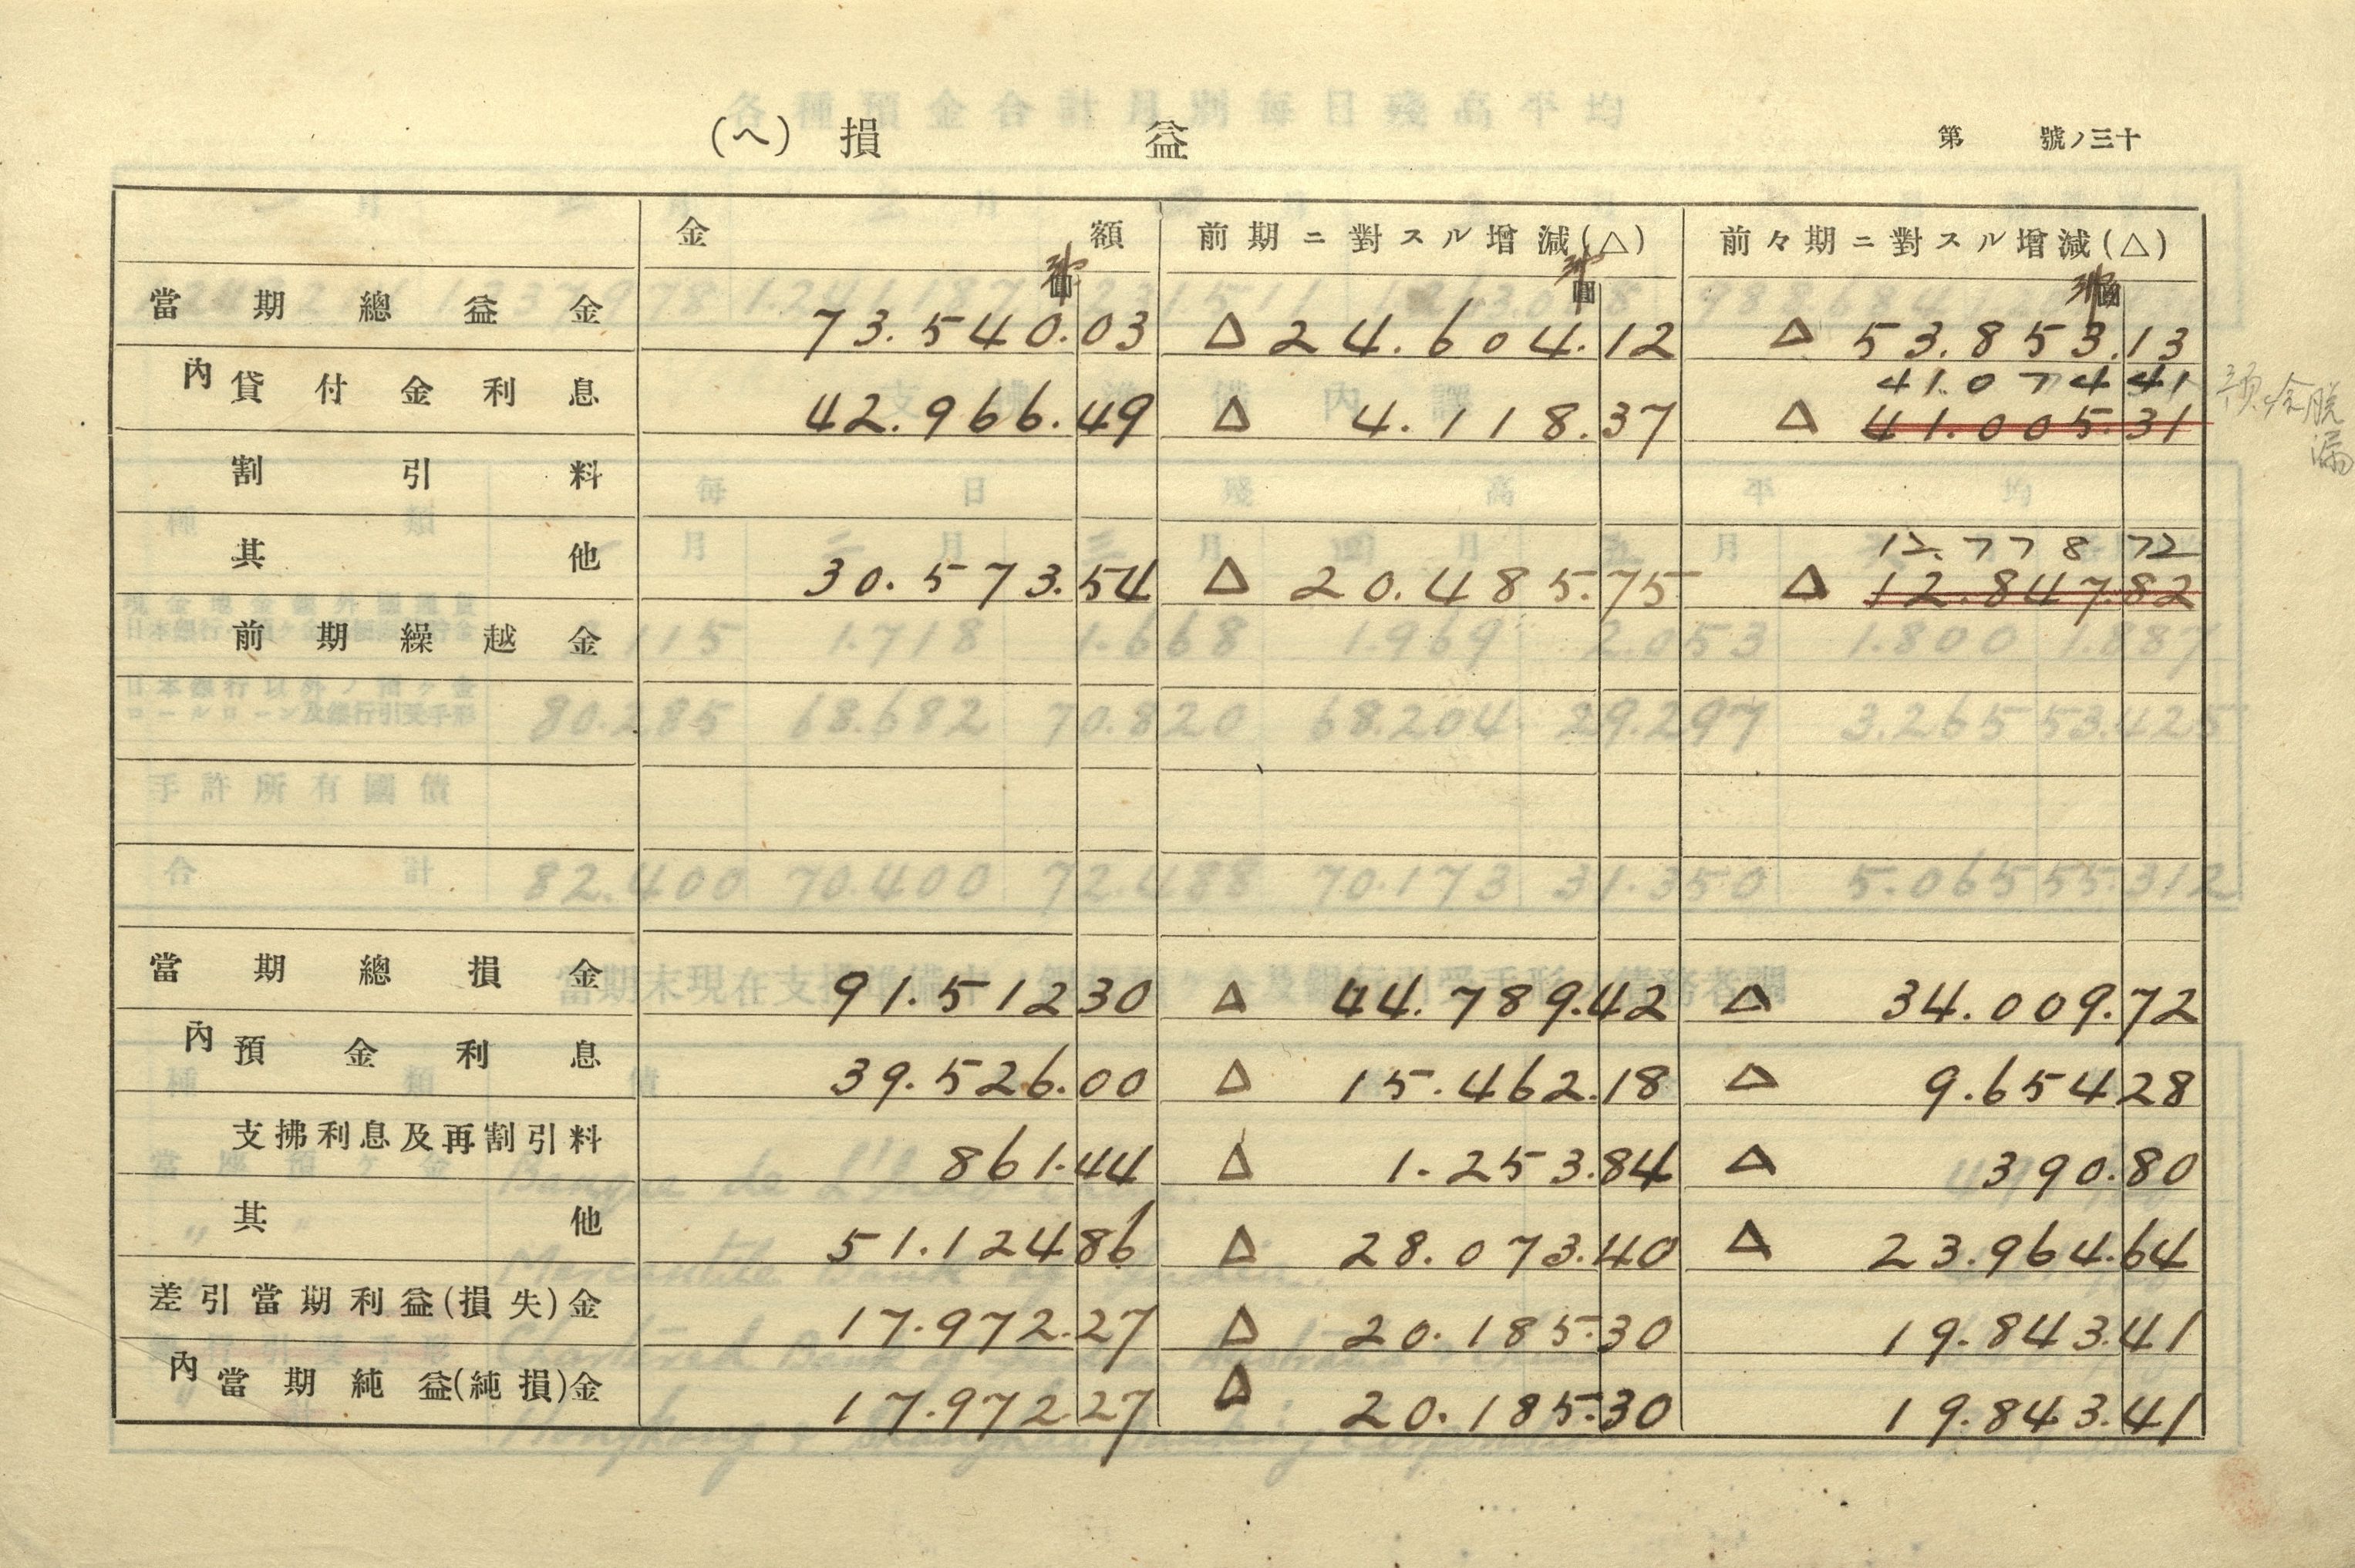 (ヘ) 損益
第 號ノ三十
金額 前期ニ對スル增減(△) 前々期ニ對スル增減(△)
當期總益金 73.540.03 △24.604.12 △53.853.13
41.074 41
內貸付金利息 42.966.49 △4.118.37 △41.005.31
預ヶ金脱漏
割引料
12.778 72
其他 30.573.54 △20.485.75 △12.847.82
前期繰越金
當期總損金 91.512 30 △44.789.42 △34.009.72
內預金利息 39.526.00 △15.462.18 △9.654 28
支拂利息及再割引料 861.44 △1.253.84 △390.80
其他 51.124 86 △28.073.40 △23.964.64
差引當期利益(損失)金 17.972.27 △20.185.30 19.843.41
內當期純益(純損)金 17.972 27 △20.185.30 19.843.41